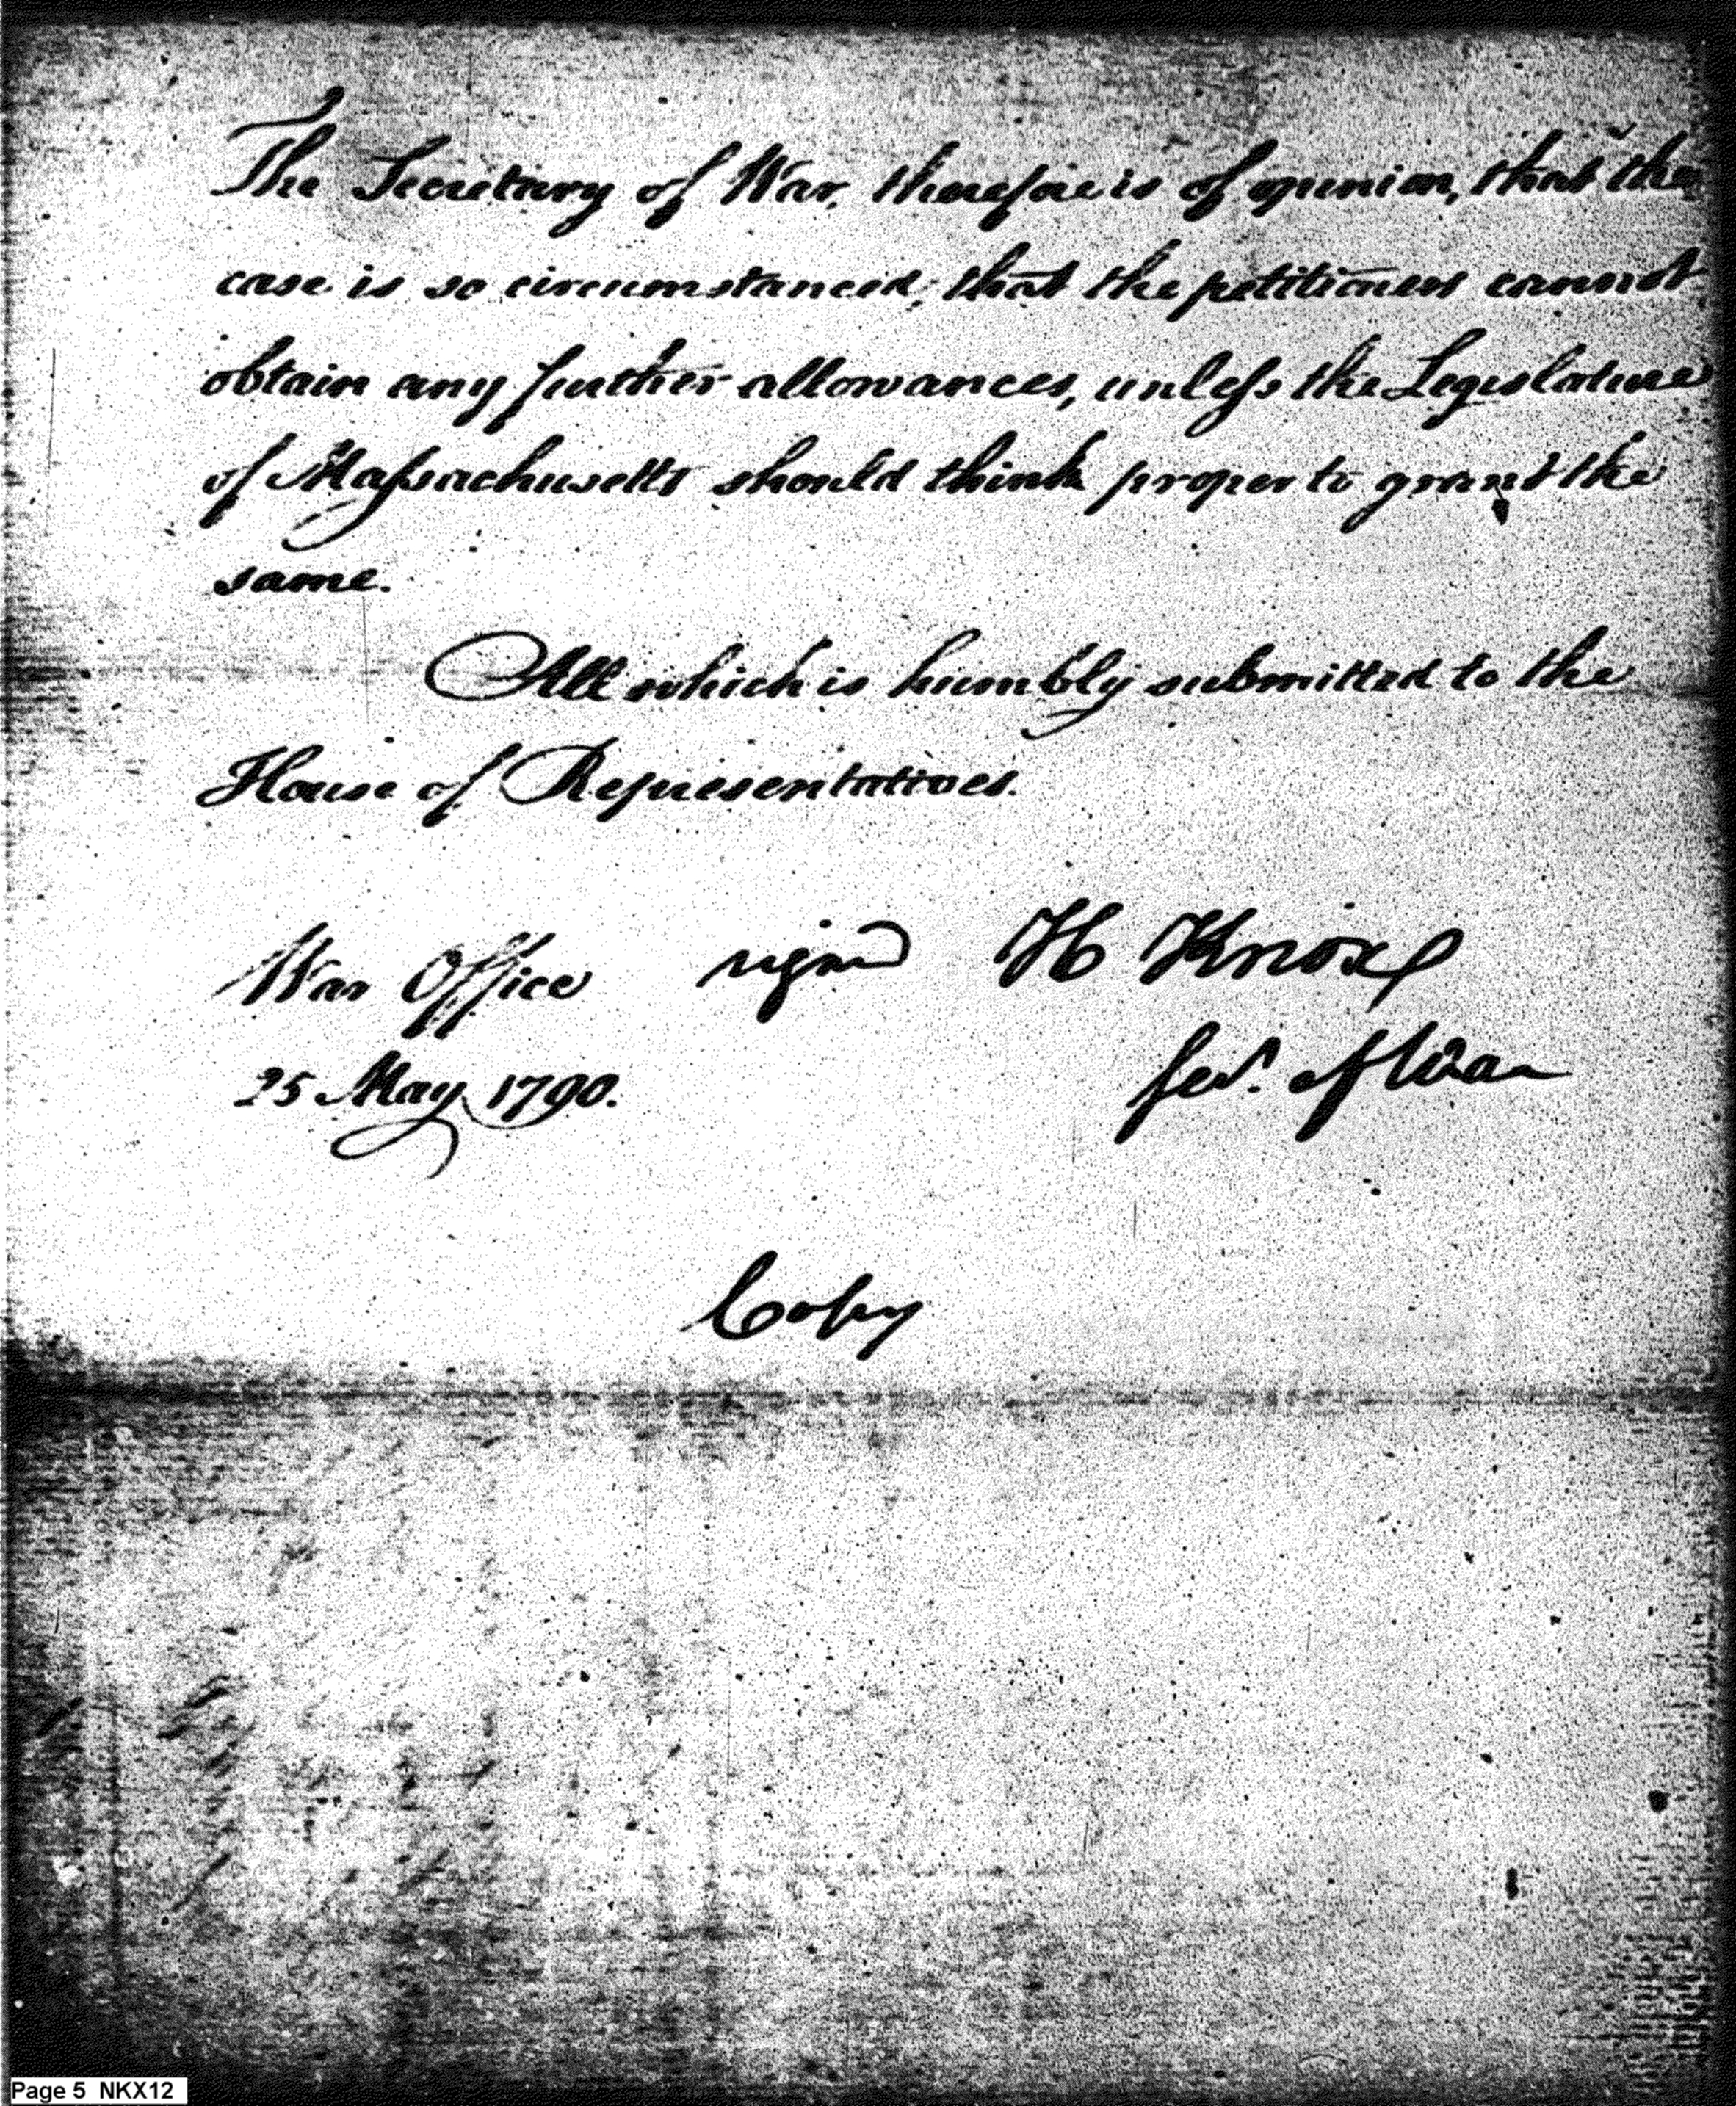 The Secretary of War, therefore is of opinion, that the
case is so circumstanced, that the petitioners cannot
obtain any further allowances, unless the Legislature
of Massachusetts should think proper to grant the
same.
All which is humbly submitted to the
House of Representatives.
War Office signd H Knox
25 May 1790. Secy. of War
Copy
Page 5 NKX12